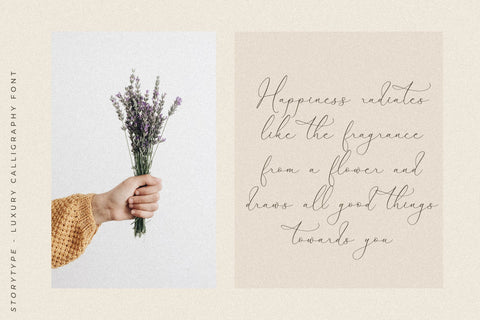 STORYTYPE - LUXURY CALLIGRAPHY FONT
Happiness radiates
like the fragrance
from a flower and
draws all good things
towards you